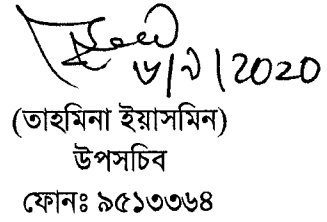 ৬/৯/2020
(তাহমিনা ইয়াসমিন)
উপসচিব
ফোনঃ ৯৫১৩৩৬৪